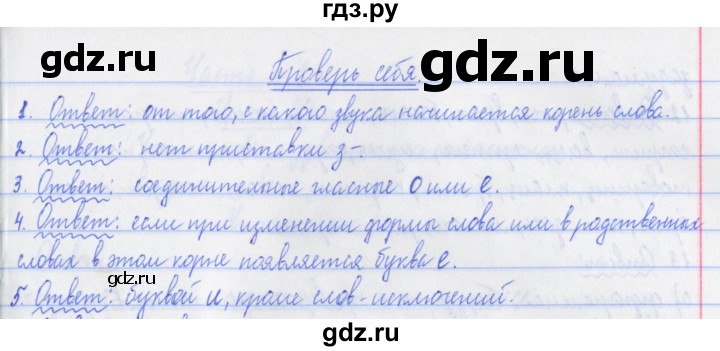 гдз.ру
gdz.ru gdz.ru
Проверь себя.
1. Ответ: от того, с какого звука начинается корень слова.
2. Ответ: нет приставки з-.
3. Ответ: соединительные гласные о или е.
4. Ответ: если при изменении формы слова или в родственных
словах в этом корне появляется буква е.
gdz.ru gdz.ru
5. Ответ: буквой и, кроме слов-исключений.
gdz.ru